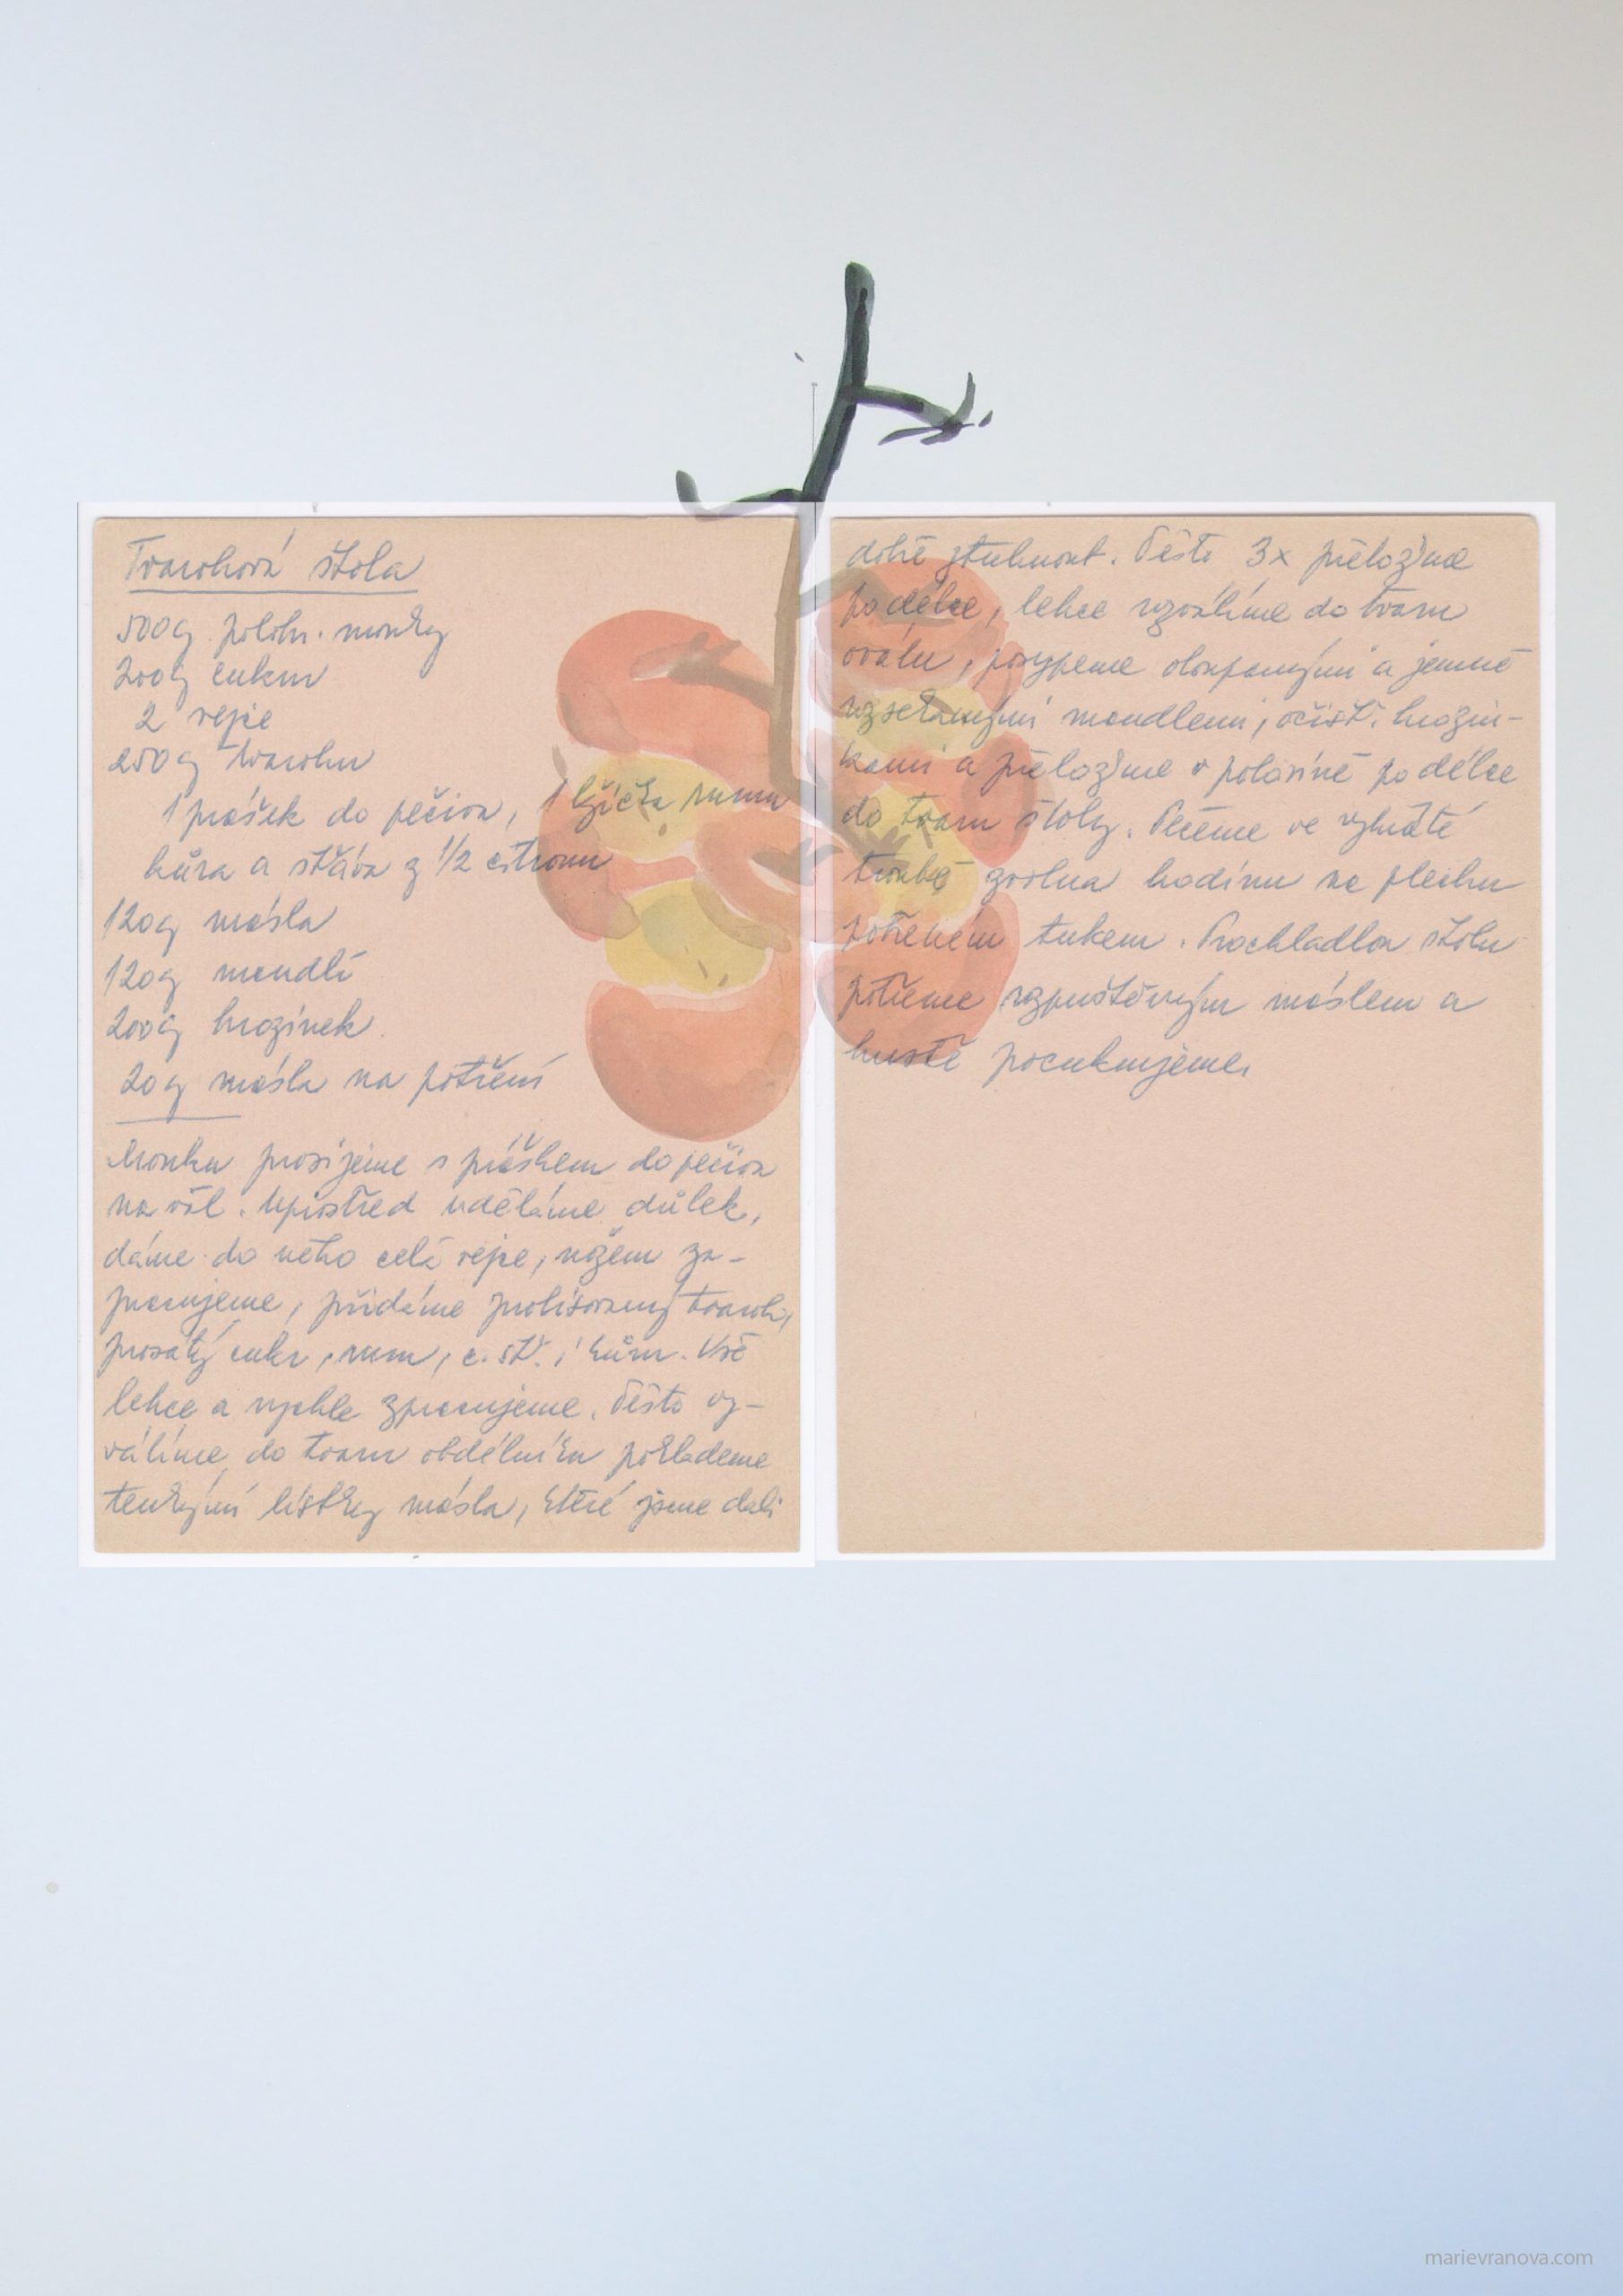 Tvarohová štola
500g poloh. mouky
200g cukru
2 vejce
250g tvarohu
1 prášek do pečiva, 1 lžička rumu
kůra a šťáva z 1/2 citronu
120g másla
120g mandlí
200g hrozinek
20g másla na potření
Mouku prosijeme s práškem do pečiva
na vál. Uprostřed uděláme důlek,
dáme do něho celá vejce, nožem za-
pracujeme, přidáme prolisovaný tvaroh,
prosátý cukr, rum, c. šť. i kůru. Vše
lehce a rychle zpracujeme. Těsto vy-
válíme do tvaru obdélníku poklademe
tenkými lístky másla, které jsme dali
dobře ztuhnout. Těsto 3x přeložíme
po délce, lehce vyválíme do tvaru
oválu, posypeme oloupanými a jemně
usekanými mandlemi, očišť. hrozin-
kami a přeložíme v polovině po délce
do tvaru štoly. Pečeme ve vyhřáté
troubě zvolna hodinu na plechu
potřeném tukem. Prochladlou štolu
potřeme rozpuštěným máslem a
hustě pocukrujeme.
marievranova.com